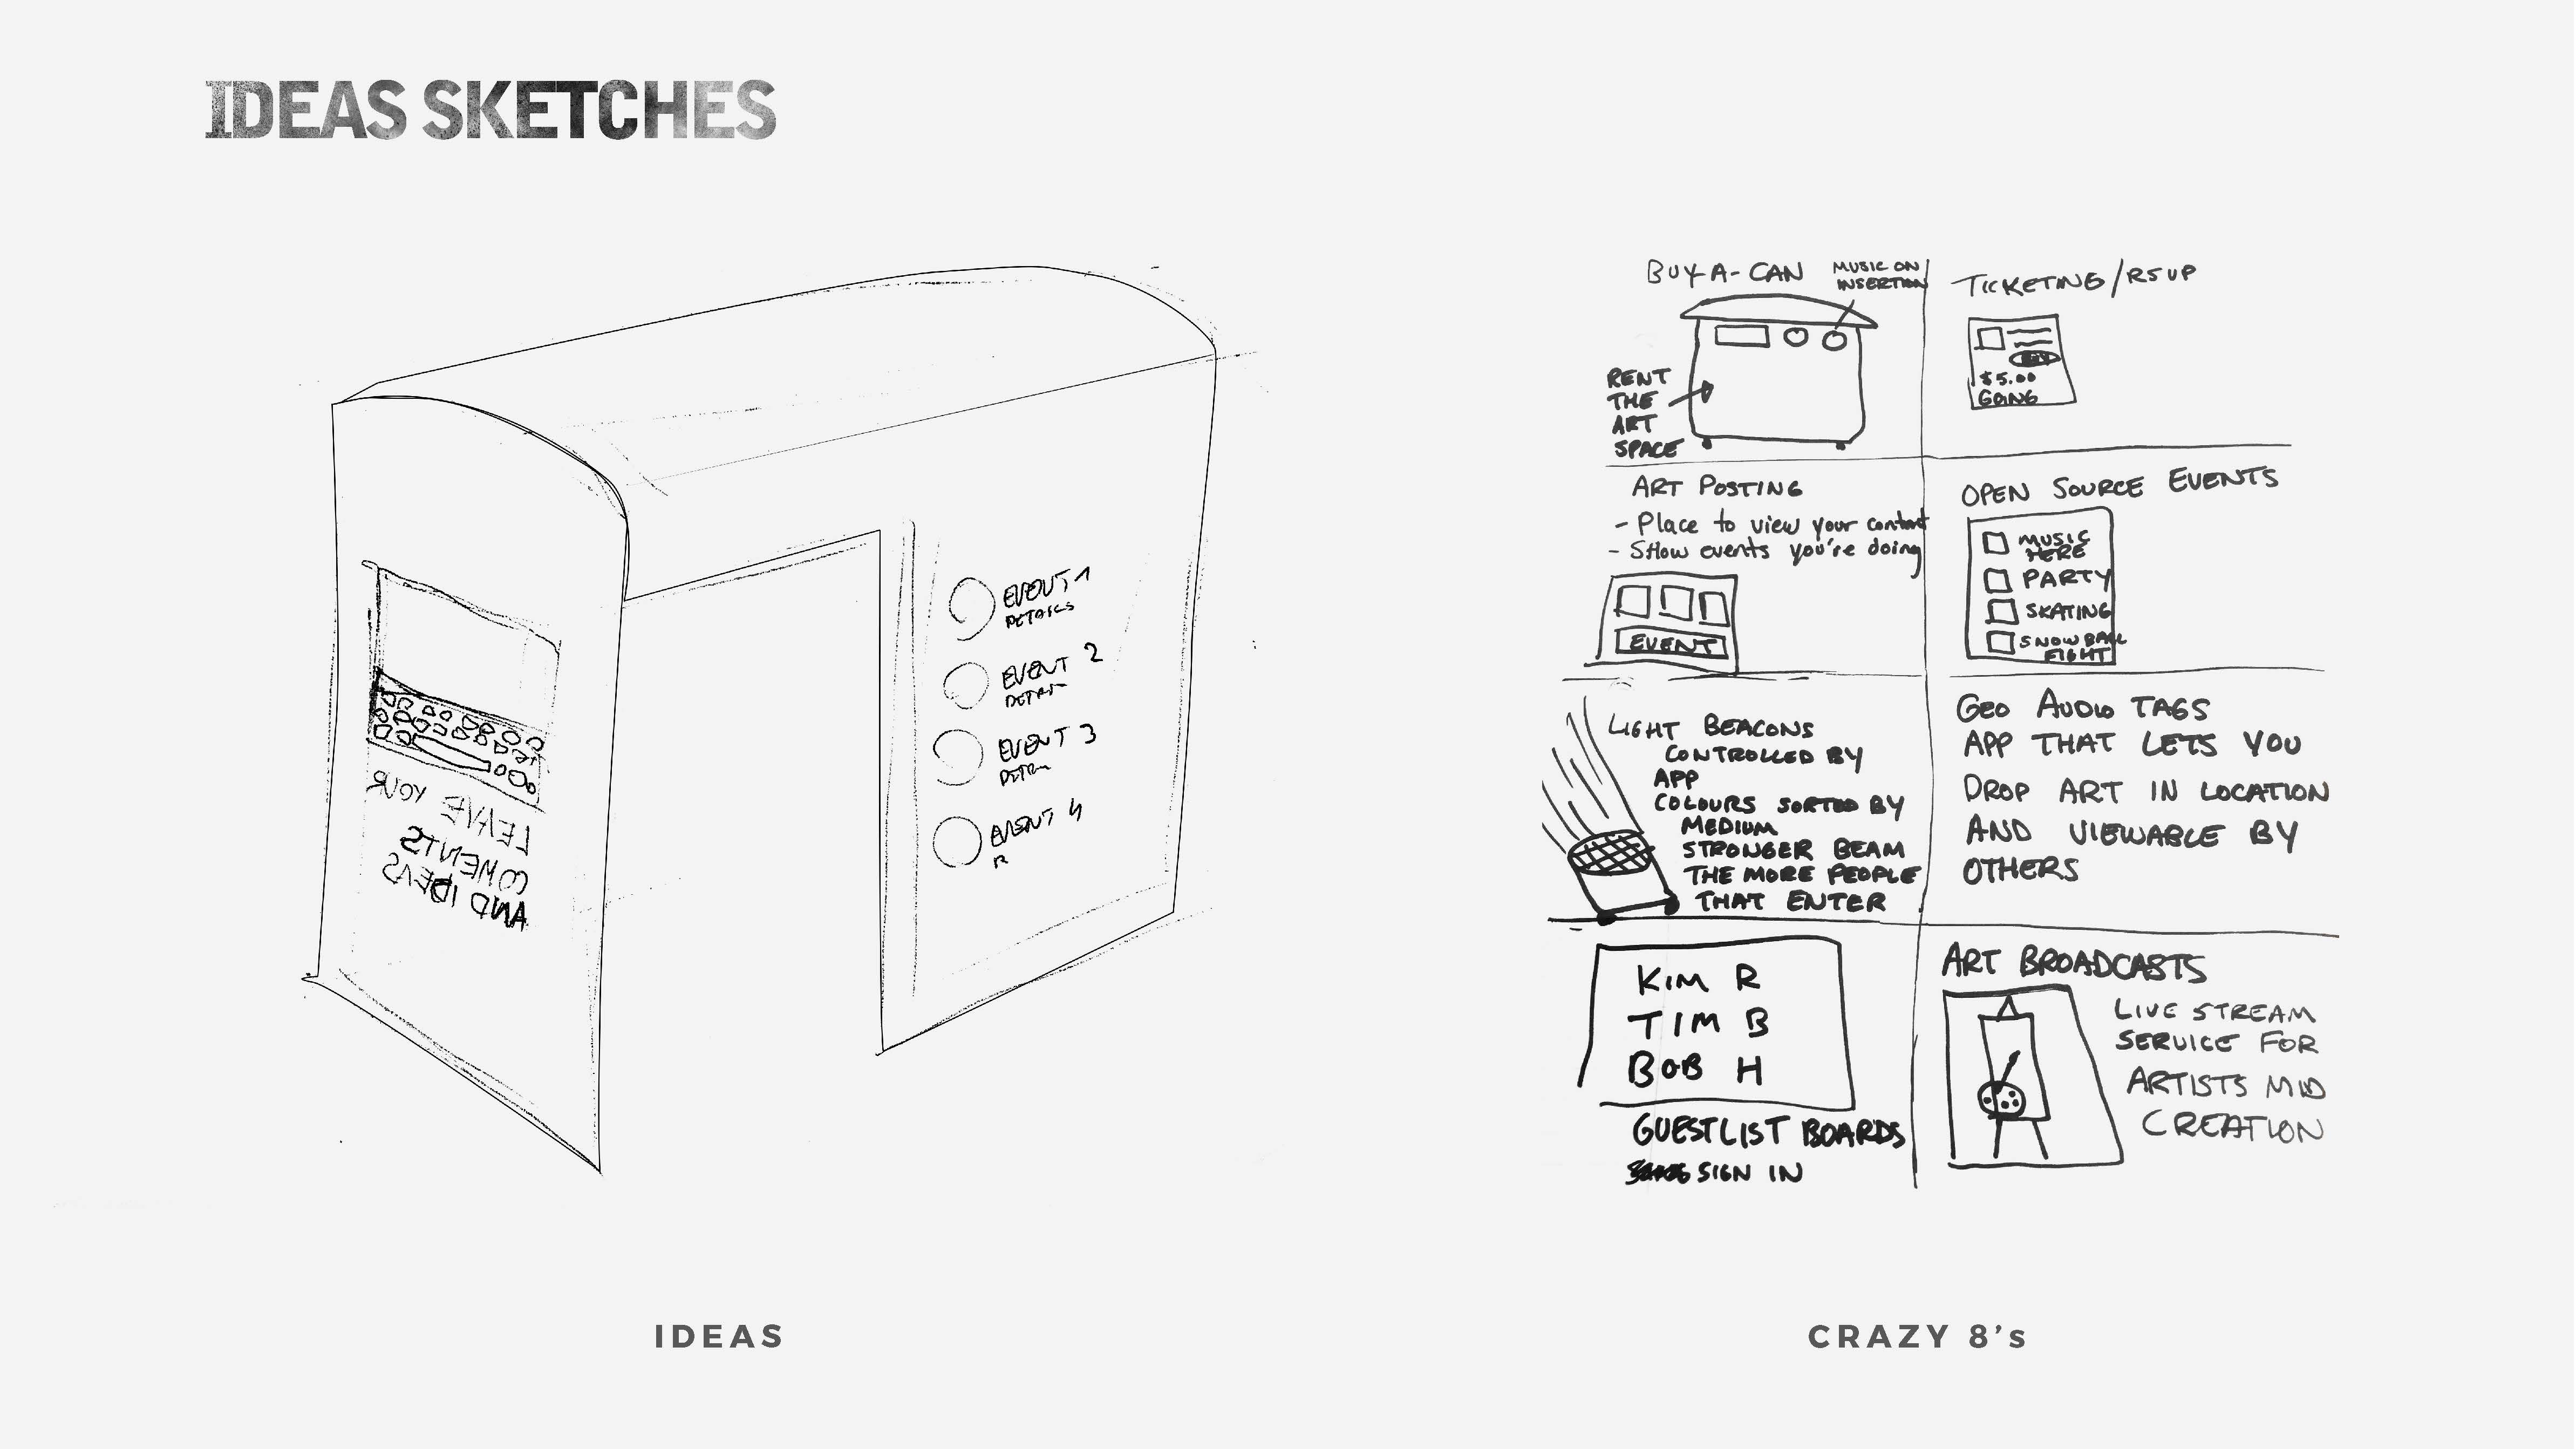 IDEAS SKETCHES
EVENT 1
DETAILS
EVENT 2
EVENT 3
EVENT 4
LEAVE YOUR
COMENTS
AND IDEAS
IDEAS
BUY-A-CAN
MUSIC ON
INSERTION
RENT
THE
ART
SPACE
TICKETING/RSVP
$5.00
GOING
ART POSTING
- Place to view your content
- Show events you're doing
EVENT
OPEN SOURCE EVENTS
MUSIC
HERE
PARTY
SKATING
SNOWBALL
FIGHT
LIGHT BEACONS
CONTROLLED BY
APP
COLOURS SORTED BY
MEDIUM
STRONGER BEAM
THE MORE PEOPLE
THAT ENTER
GEO AUDIO TAGS
APP THAT LETS YOU
DROP ART IN LOCATION
AND VIEWABLE BY
OTHERS
KIM R
TIM B
BOB H
GUESTLIST BOARDS
SIGN IN
ART BROADCASTS
LIVE STREAM
SERVICE FOR
ARTISTS MID
CREATION
CRAZY 8's